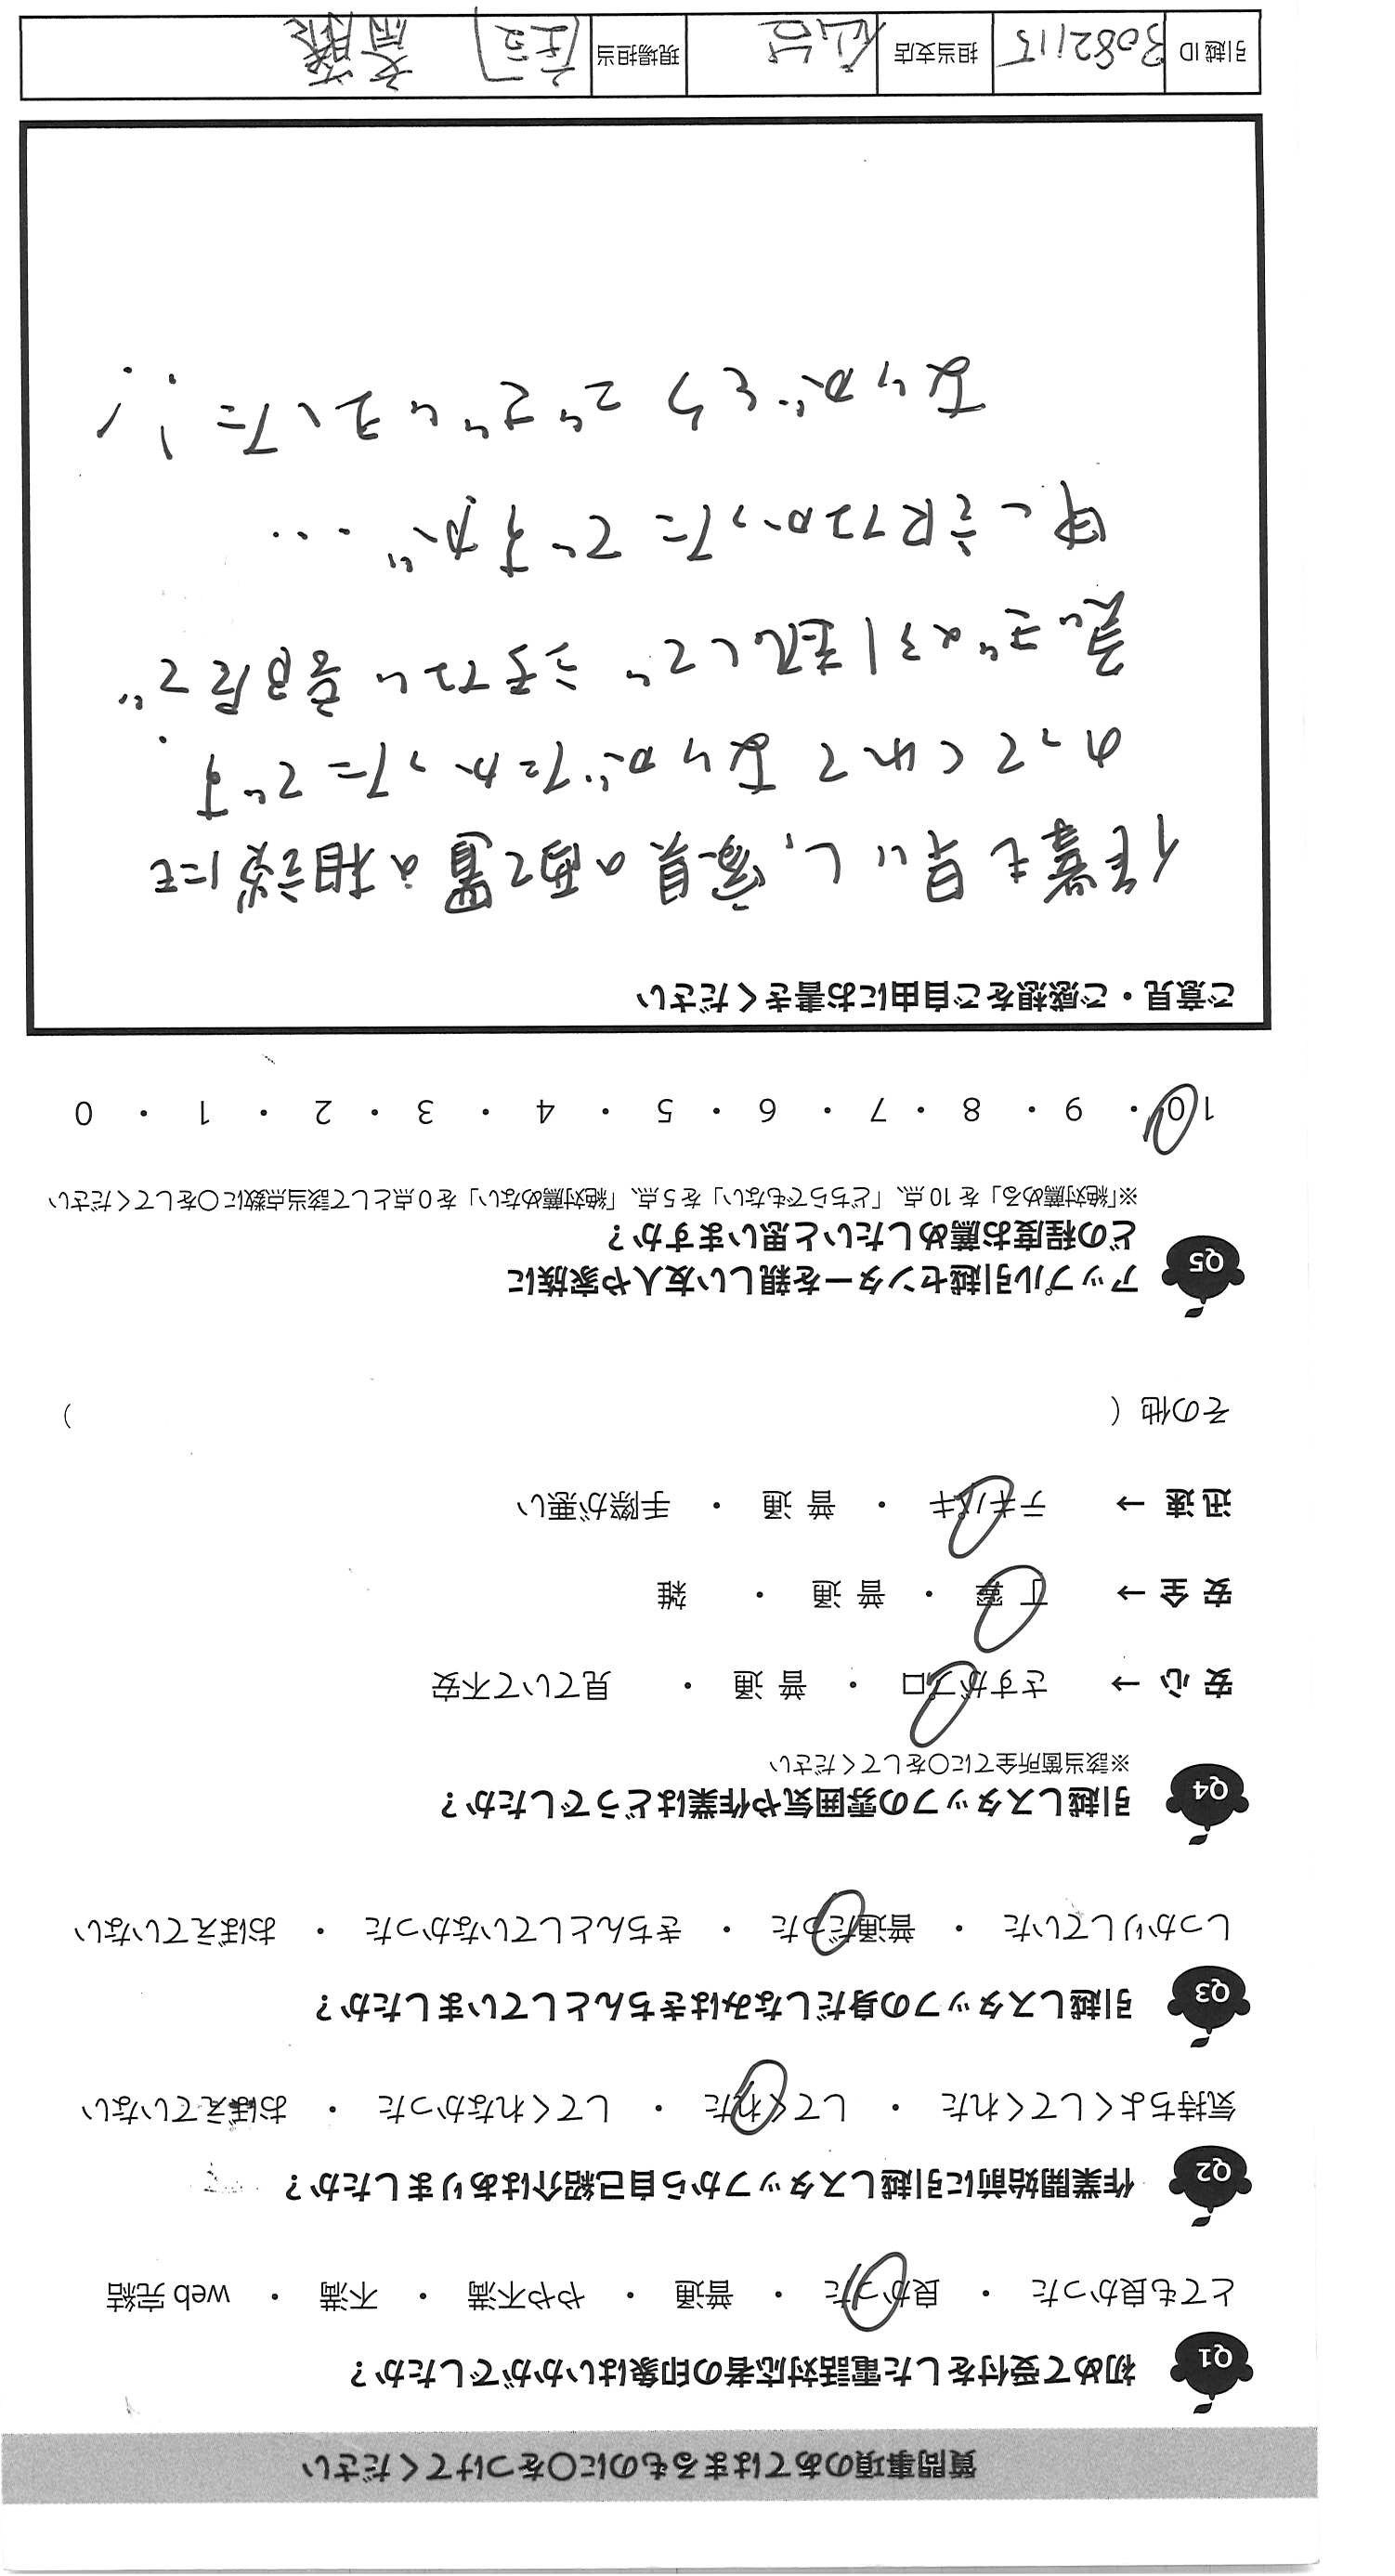 質問事項のあてはまるものに○をつけてください
Q1 初めて受付をした電話対応者の印象はいかがでしたか？
とても良かった ・ 良かった ・ 普通 ・ やや不満 ・ 不満 ・ web 完結
Q2 作業開始前に引越しスタッフから自己紹介はありましたか？
気持ちよくしてくれた ・ してくれた ・ してくれなかった ・ おぼえていない
Q3 引越しスタッフの身だしなみはきちんとしていましたか？
しっかりしていた ・ 普通だった ・ きちんとしていなかった ・ おぼえていない
Q4 引越しスタッフの雰囲気や作業はどうでしたか？
※該当箇所全てに○をしてください
安 心 → さすがプロ ・ 普 通 ・ 見ていて不安
安 全 → 丁 寧 ・ 普 通 ・ 雑
迅 速 → テキパキ ・ 普 通 ・ 手際が悪い
その他（ ）
Q5 アップル引越センターを親しい友人や家族に
どの程度お薦めしたいと思いますか？
※「絶対薦める」を 10 点、「どちらでもない」を 5 点、「絶対薦めない」を 0 点として該当点数に○をしてください
10 ・ 9 ・ 8 ・ 7 ・ 6 ・ 5 ・ 4 ・ 3 ・ 2 ・ 1 ・ 0
ご意見・ご感想をご自由にお書きください
作業も早いし、家具の配置の相談にも
のってくれてありがたかったです。
急きょの引越しで、汚ない部屋で
申し訳なかったですが、...
ありがとうございました!!
引越 ID 3082115 担当支店 仙台 現場担当